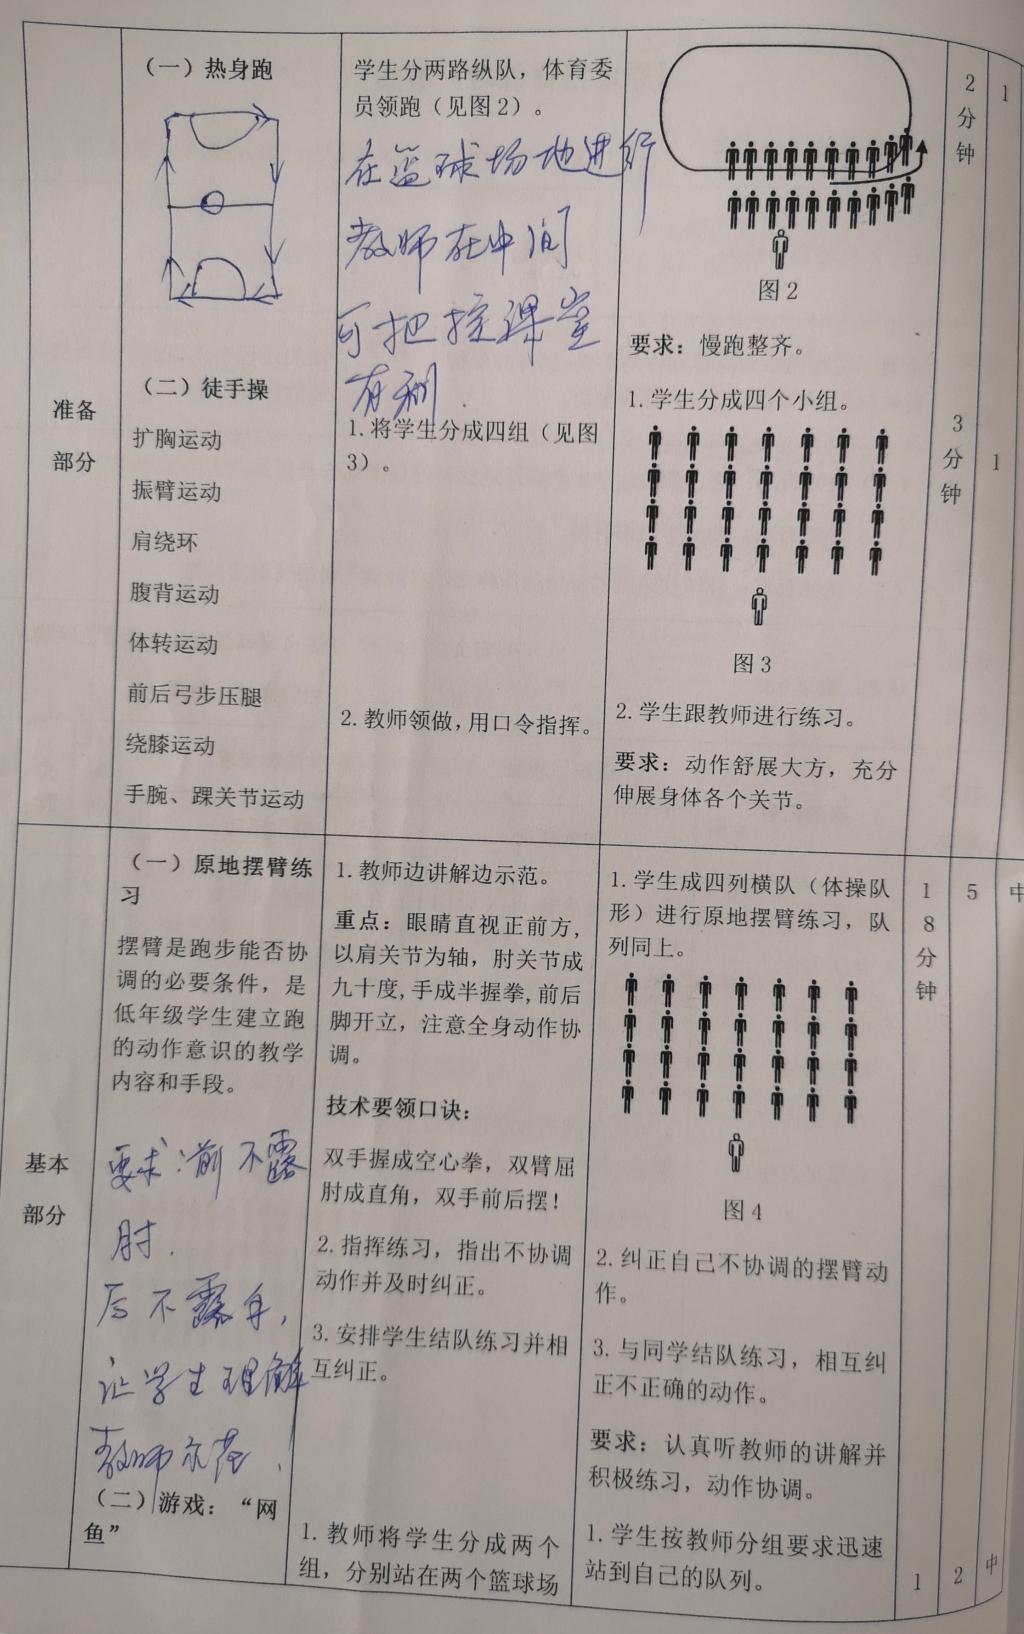 准备
部分
（一）热身跑
（二）徒手操
扩胸运动
振臂运动
肩绕环
腹背运动
体转运动
前后弓步压腿
绕膝运动
手腕、踝关节运动
学生分两路纵队，体育委
员领跑（见图2）。
在篮球场地进行
教师在中间
可把控课堂
有利.
1.将学生分成四组（见图
3）。
2.教师领做，用口令指挥。
图2
要求：慢跑整齐。
1.学生分成四个小组。
图3
2.学生跟教师进行练习。
要求：动作舒展大方，充分
伸展身体各个关节。
2
分
钟
3
分
钟
1
1
基本
部分
（一）原地摆臂练
习
摆臂是跑步能否协
调的必要条件，是
低年级学生建立跑
的动作意识的教学
内容和手段。
要求：前不露
肘.
后不露手，
让学生理解
教师示范.
（二）游戏：“网
鱼”
1.教师边讲解边示范。
重点：眼睛直视正前方，
以肩关节为轴，肘关节成
九十度,手成半握拳,前后
脚开立，注意全身动作协
调。
技术要领口诀：
双手握成空心拳，双臂屈
肘成直角，双手前后摆！
2.指挥练习，指出不协调
动作并及时纠正。
3.安排学生结队练习并相
互纠正。
1.教师将学生分成两个
组，分别站在两个篮球场
1.学生成四列横队（体操队
形）进行原地摆臂练习，队
列同上。
图4
2.纠正自己不协调的摆臂动
作。
3.与同学结队练习，相互纠
正不正确的动作。
要求：认真听教师的讲解并
积极练习，动作协调。
1.学生按教师分组要求迅速
站到自己的队列。
1
8
分
钟
1
5
2
中
中